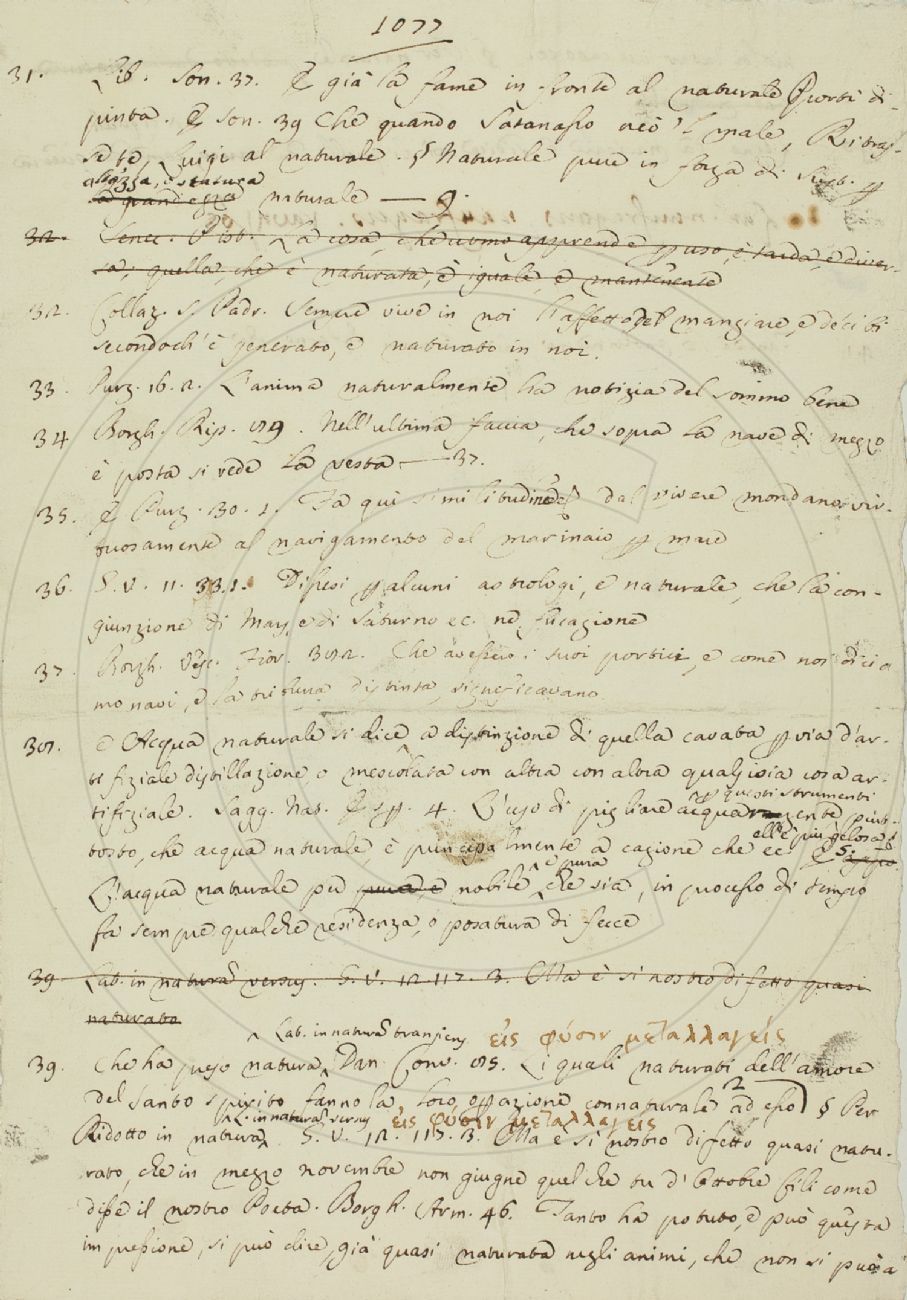 1077
31. Lib. Son. 37. E già la fame in fronte al naturale Porti di-
pinta. E Son. 39 Che quando Satanasso reò 'l male, Ritras-
se te, Luigi al naturale. § Naturale pure in forza di Sust. p
altezza, e statura
la grandezza naturale
32. Cenn. Pitt. La cosa, che uomo apprende p uso, è tarda, e diver-
sa, quella, che è naturata, è iguale, e mantenente
32. Collaz. S. Padr. Sempre vive in noi l'affetto del mangiare, e de' cibi
secondoch' è generato, e naturato in noi.
33. Purg. 16. 2. L'anima naturalmente ha notizia del sommo bene
34 Borgh. Rip. 129. Nell'ultima faccia, che sopra la nave di mezzo
è posta si vede la vesta — 37.
35. E Purg. 30. 1. Fa qui similitudine del dal vivere mondano vir-
tuosamente al navigamento del marinaio p mare
36. G. V. 11. 33. 1. Dissesi p alcuni astrologi, e naturale, che la con-
giunzione di Mars, e di Saturno ec. ne fu cagione
37. Borgh. Vesc. Fior. Che avessero i suoi portici, e come noi dicia
mo navi, e la tribuna distinta, significavano
38. E Acqua naturale si dice a distinzione di quella cavata p via d'ar-
tifiziale distillazione o mescolata con altra con altra qualsisia cosa ar-
p questi strumenti
tifiziale. Sagg. Nat. Esp. 4. L'uso di pigliare acquarzente piut-
ell' è più gelosa
tosto, che acqua naturale, è principalmente a cagione che ec.
è pura
L'acqua naturale per pura, e nobile che sia, in processo di tempo
fa sempre qualche residenza, o posatura di fecce
39 Lat. in naturam versus. G. V. 12. 117. 3. Ma è sì nostro difetto quasi
naturato
^ Lat. in naturam transiens εἰς φύσιν μεταλλαγείς
39. Che ha preso natura, Dan. Conv. 85. Li quali naturati dell'amore
del Santo spirito fanno la loro oppazione connaturale ad esso § Per
Lat. in naturam versus εἰς φύσιν μεταλλαγείς
Ridotto in natura G. V. 12. 117. 3. Ma è sì nostro difetto quasi natu-
rato, che in mezzo novembre non giugne quel che tu d'Ottobre fili come
disse il nostro Poeta. Borgh. Arm. 46. Tanto ha potuto, e può questa
impressione, si può dire, già quasi naturata negli animi, che non si può a